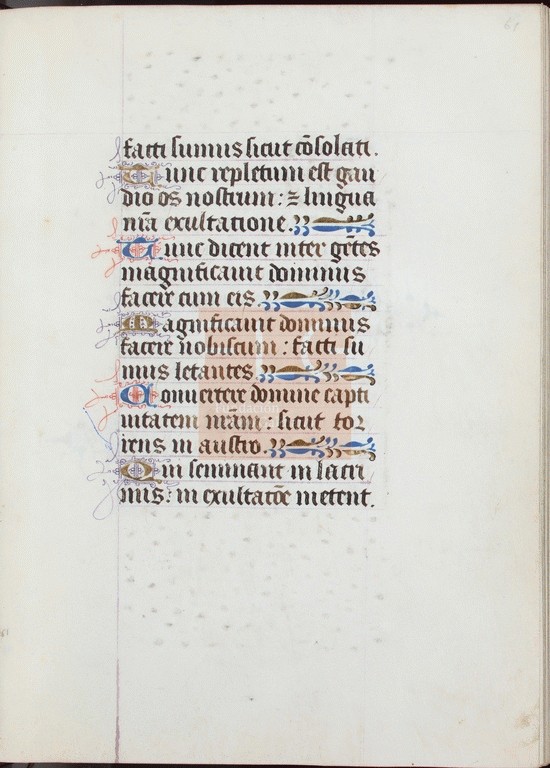 61
facti sumus sicut cōsolati.
Tunc repletum est gau
dio os nostrum: ⁊ lingua
nr̄a exultatione.
Tunc dicent inter gētes
magnificauit dominus
facere cum eis.
Magnificauit dominus
facere nobiscum: facti su
mus letantes
Conuertere domine capti
uitatem nr̄am: sicut tor
rens in austro.
Qui seminant in lacri
mis: in exultatōe metent.